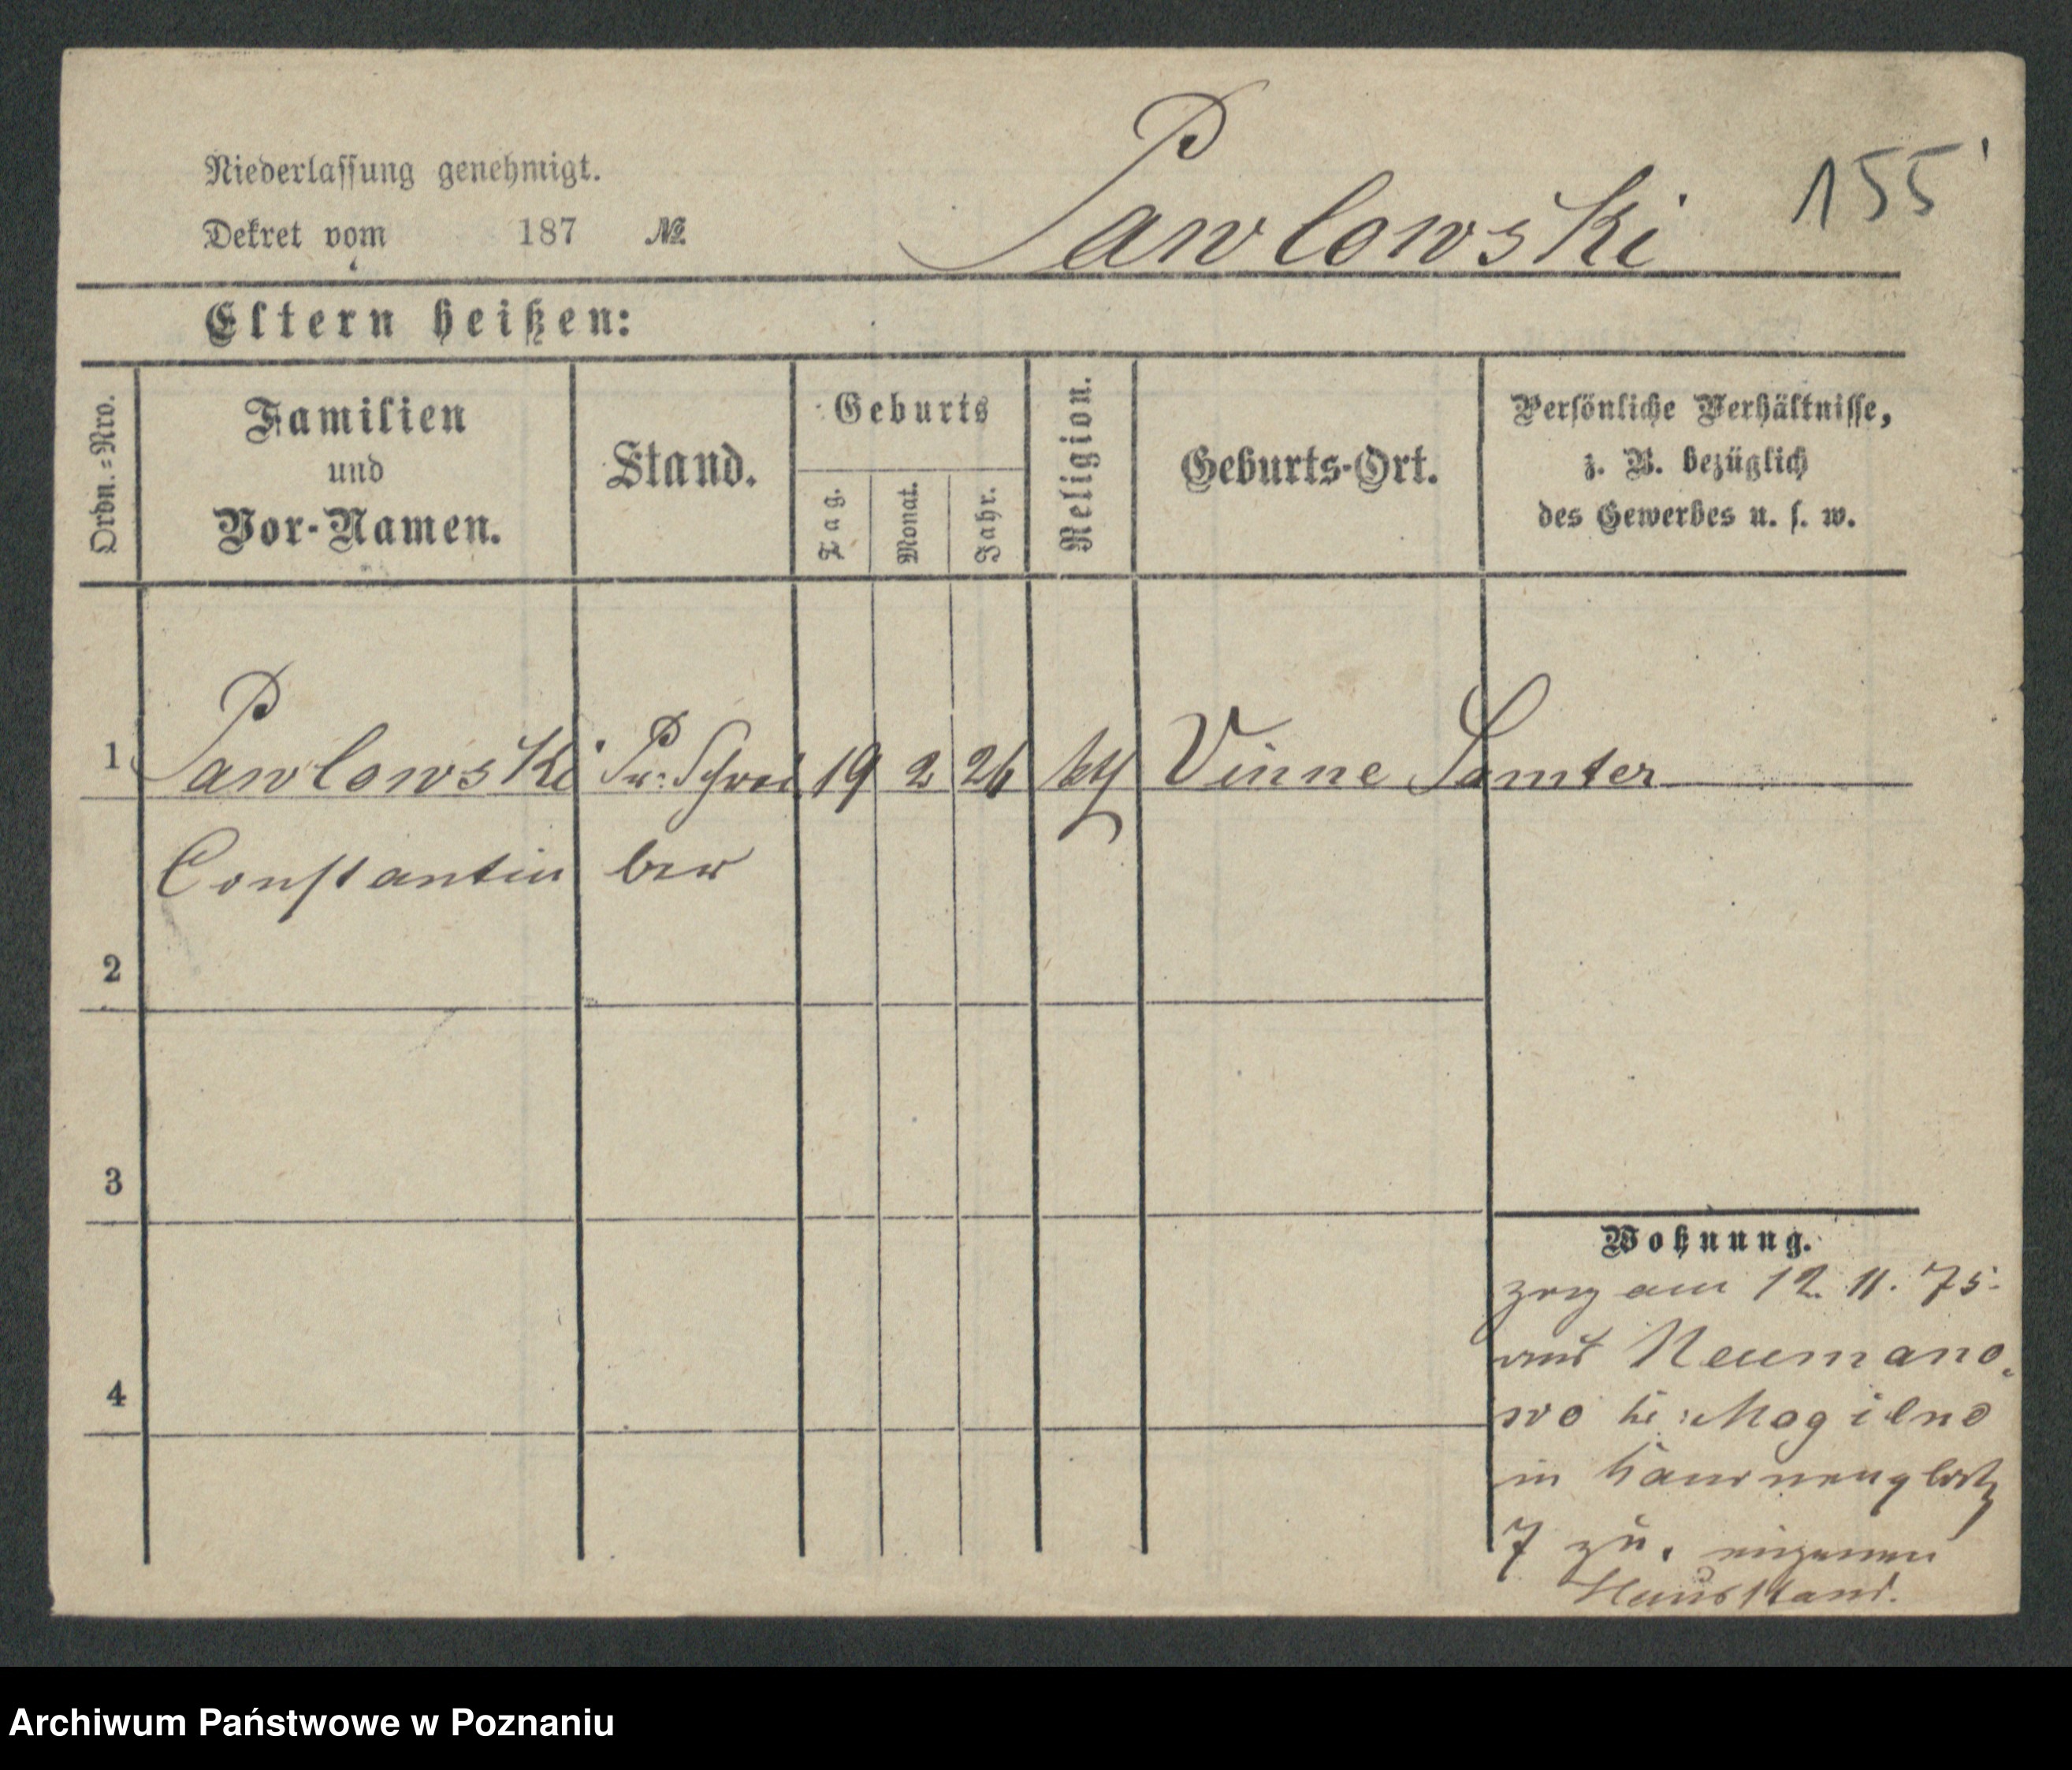 Niederlassung genehmigt.
Dekret vom 187 №
Pawlowski
155
Eltern heißen:
Ordn.-Nro.
Familien
und
Vor-Namen.
Stand.
Geburts
Tag.
Monat.
Jahr.
Religion.
Geburts-Ort.
Persönliche Verhältnisse,
z. B. bezüglich
des Gewerbes u. s. w.
1 Pawlowski Pr: Schrei 19 2 26 kth Vinne Samter
Constantin ber
2
3
4
Wohnung.
zog am 12. 11. 75.
aus Neumano
wo Mogilno
in
7 zu.
Hausstand.
Archiwum Państwowe w Poznaniu